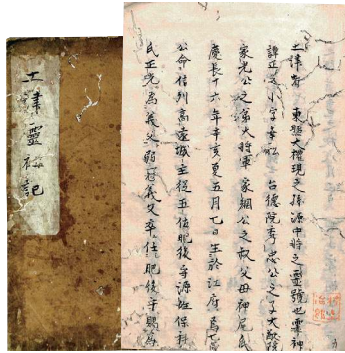 土津靈社記
土津者 東照大權現之孫源中將之靈號也靈神
諱正之小字幸松 台德院秀忠公之子大猷院
家光公之弟大將軍家綱公之叔父母神尾氏
慶長十六年辛亥夏五月七日生於江府
公命信州高遠城主從五位肥後守源姓保科
氏正光為義父 義父卒任肥後守賜